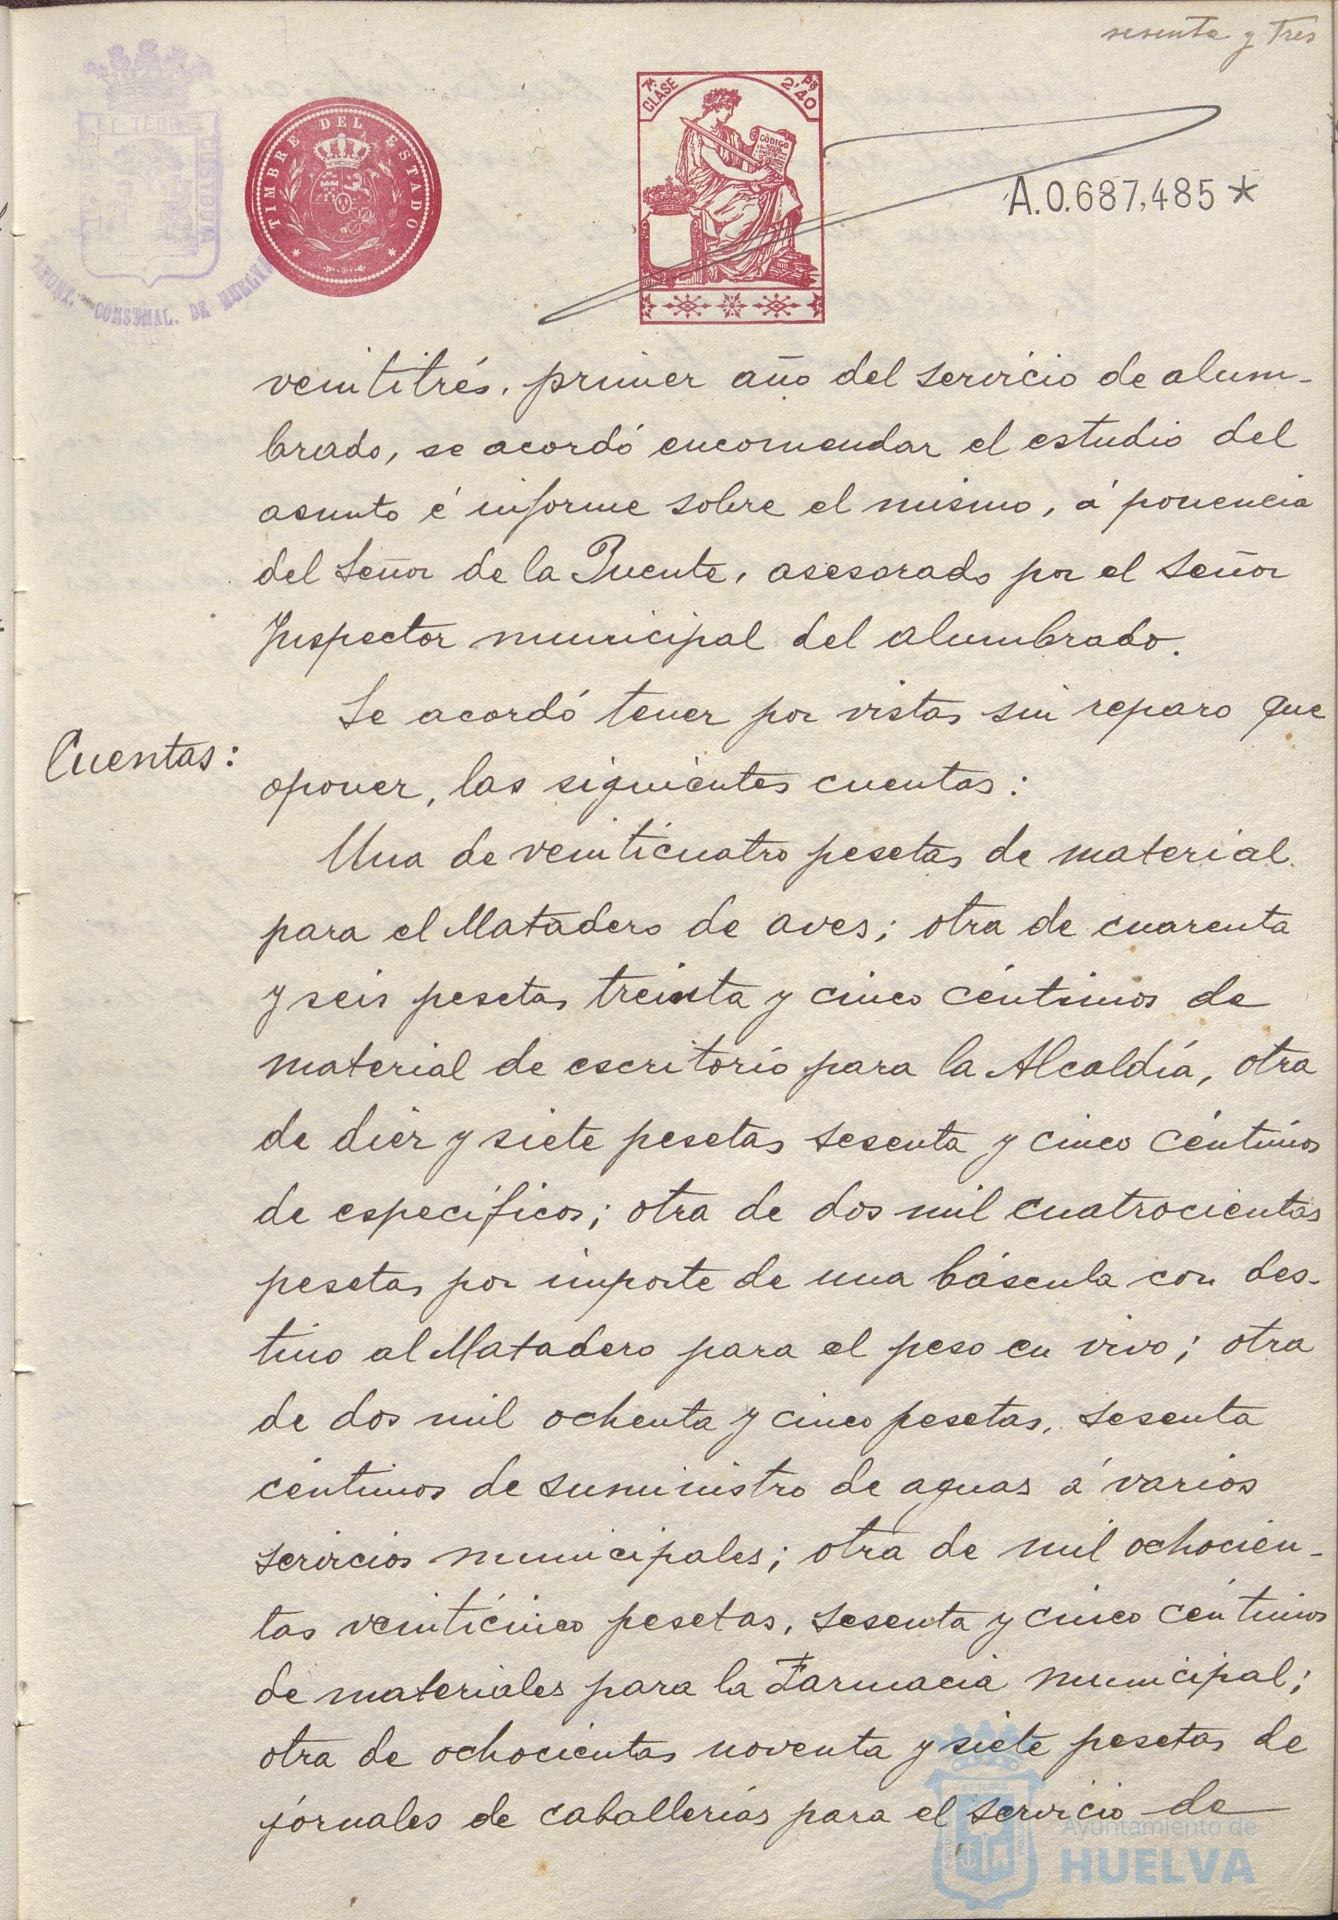 sesenta y tres
ET TERRE
CUSTODIA
AYUNT. CONSTNAL. DE HUELVA
TIMBRE DEL ESTADO
7ª CLASE
2'40 Ps
CÓDIGO
A.0.687,485*
veintitrés, primer año del servicio de alum-
brado, se acordó encomendar el estudio del
asunto é informe sobre el mismo, á ponencia
del Señor de la Puente, asesorado por el Señor
Inspector municipal del alumbrado.
Se acordó tener por vistas sin reparo que
Cuentas:
oponer, las siguientes cuentas:
Una de veinticuatro pesetas de material
para el Matadero de aves; otra de cuarenta
y seis pesetas treinta y cinco céntimos de
material de escritorio para la Alcaldía, otra
de diez y siete pesetas sesenta y cinco céntimos
de específicos; otra de dos mil cuatrocientas
pesetas por importe de una báscula con des-
tino al Matadero para el peso en vivo; otra
de dos mil ochenta y cinco pesetas, sesenta
céntimos de suministro de aguas á varios
servicios municipales; otra de mil ochocien-
tas veinticinco pesetas, sesenta y cinco céntimos
de materiales para la Farmacia municipal;
otra de ochocientas noventa y siete pesetas de
jornales de caballerías para el servicio de
ET TERRE
Ayuntamiento de
HUELVA